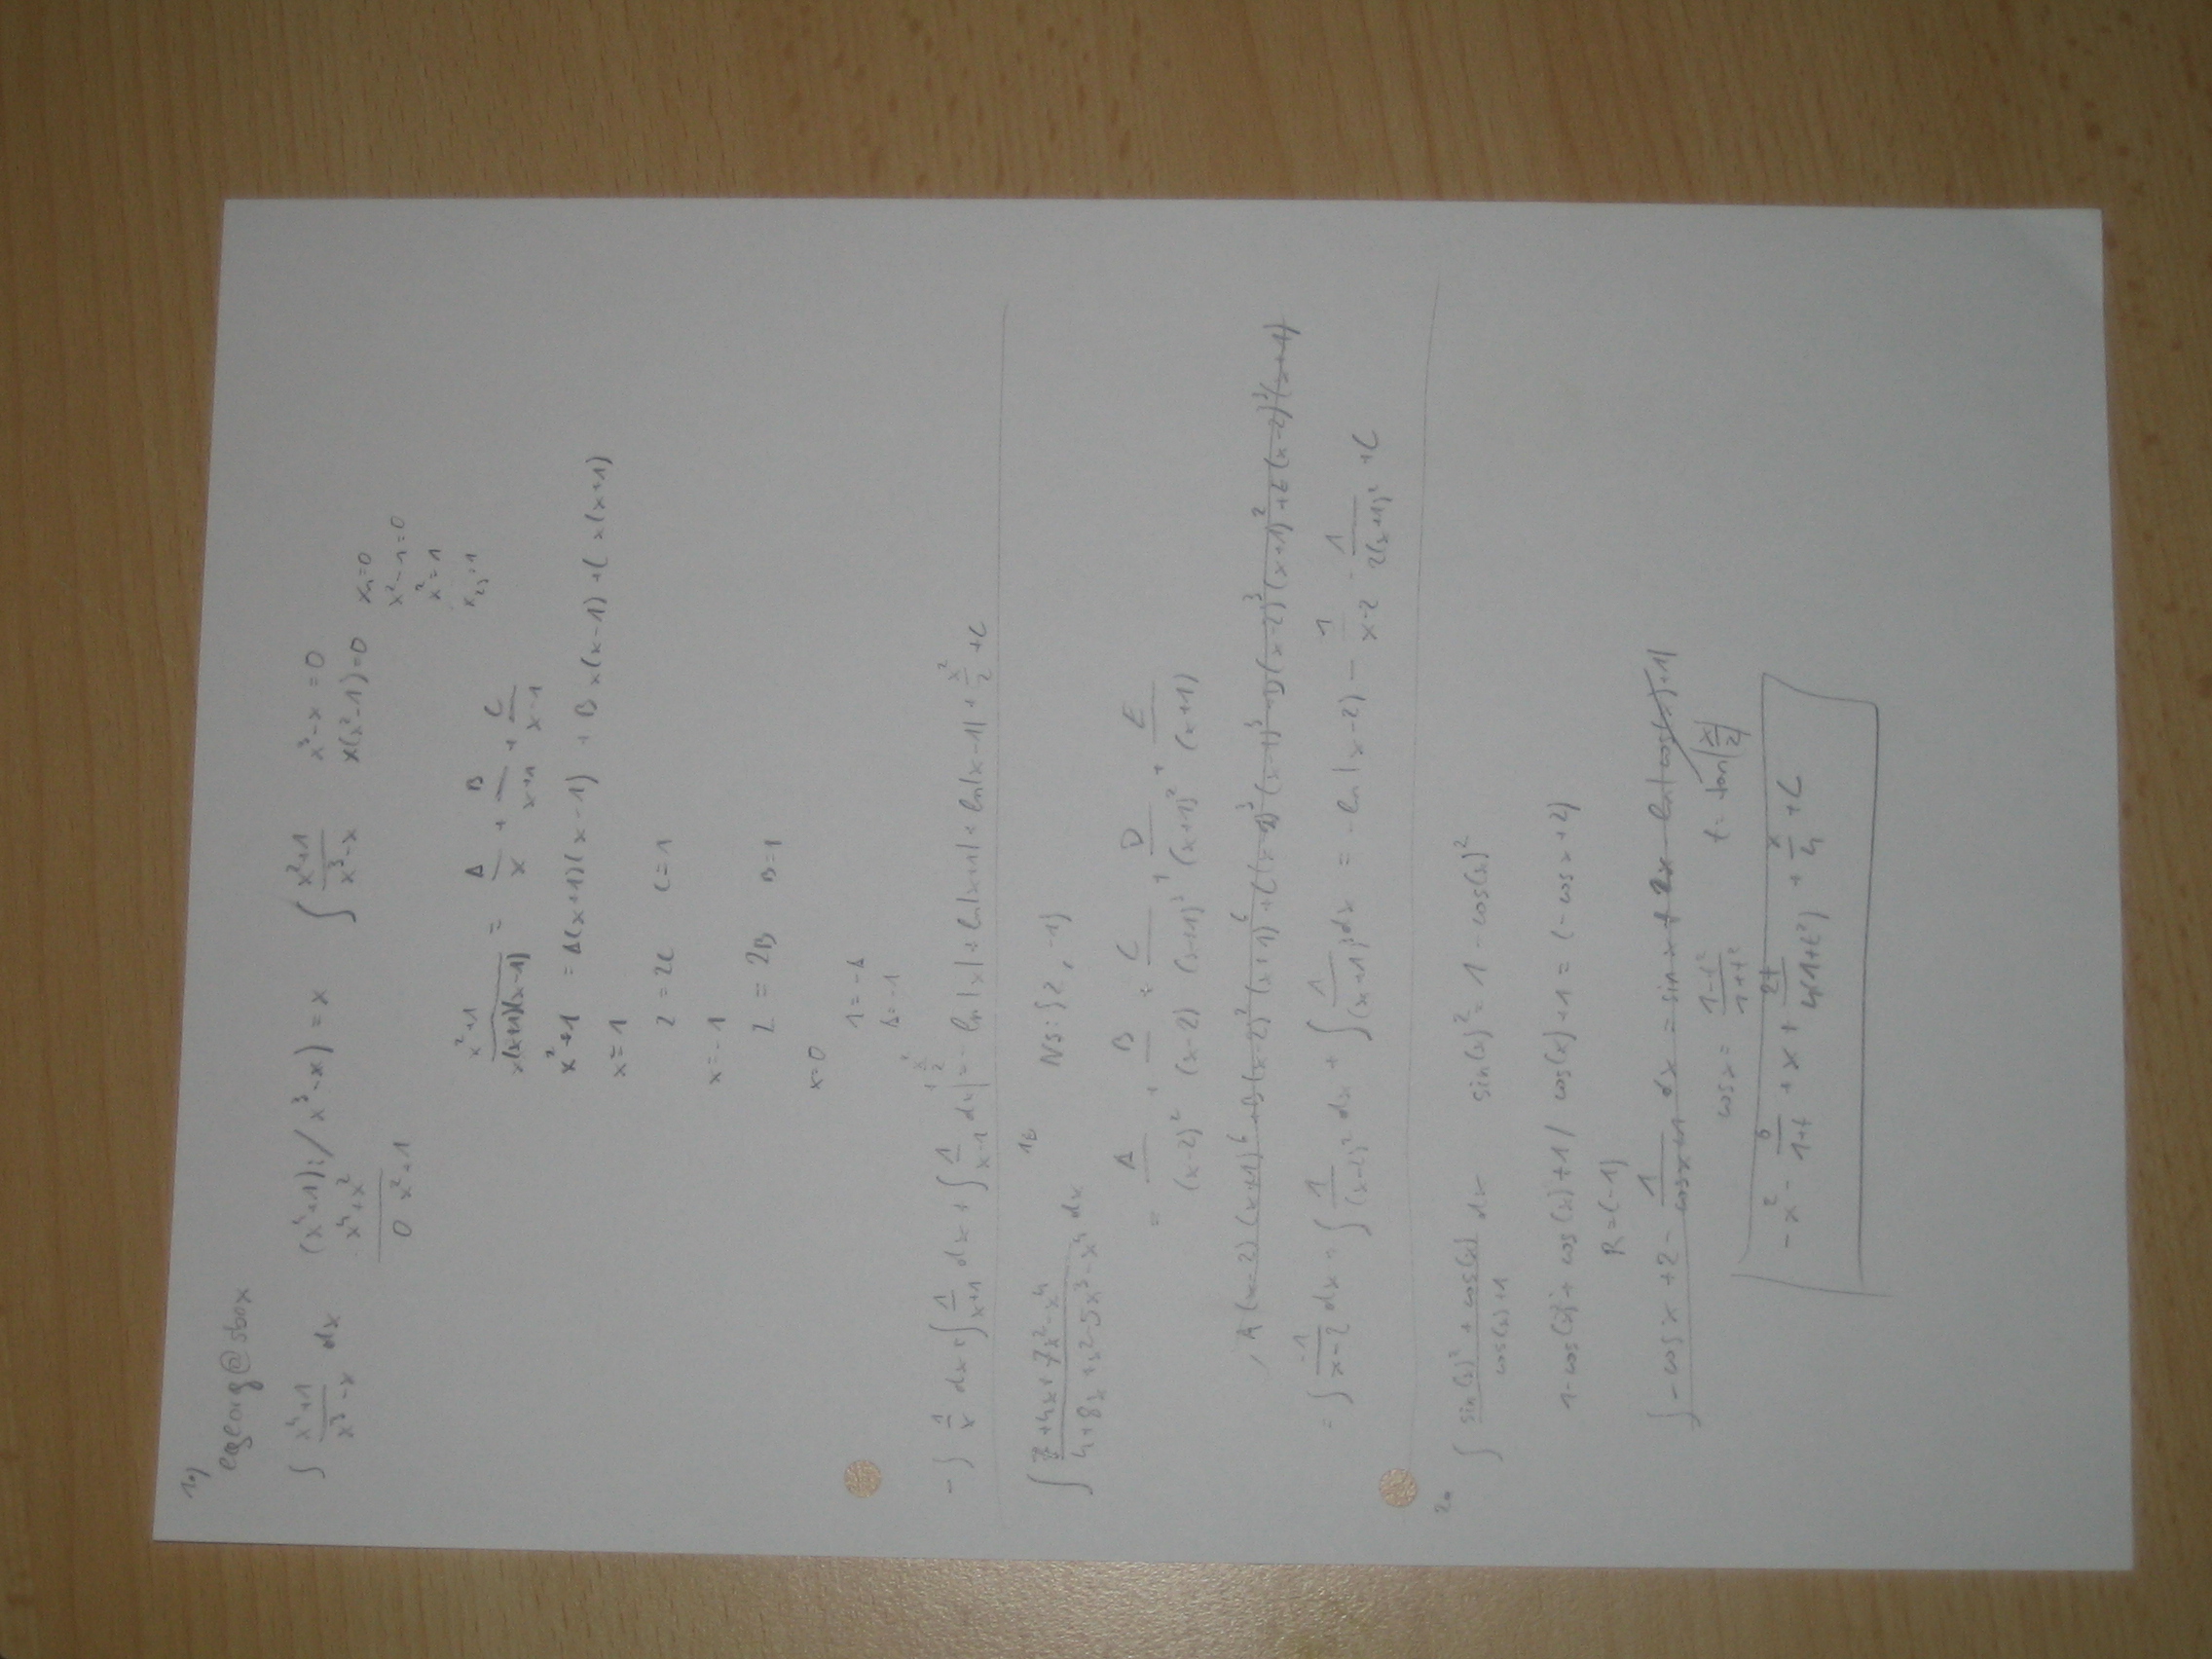 1a)
egeorg@sbox
∫ (x⁴+1)/(x³-x) dx    (x⁴+1):/x³-x) = x    ∫ (x²+1)/(x³-x)    x³-x=0
-x⁴+x²    x(x²-1)=0    x₁=0
0 x²+1    x²-1=0
x²=1
x₂,₃=1
(x²+1)/(x(x+1)(x-1)) = A/x + B/(x+1) + C/(x-1)
x²+1 = A(x+1)(x-1) + Bx(x-1) + Cx(x+1)
x=1
2=2C    C=1
x=-1
2=2B    B=1
x=0
1=-A
A=-1
-∫ 1/x dx + ∫ 1/(x+1) dx + ∫ 1/(x-1) dx + x²/2 = -ln|x| + ln|x+1| + ln|x-1| + x²/2 + C
1b
∫ (7+4x+7x²-x⁴)/(4+8x+x²-5x³-x⁴) dx    NS: {2, -1}
= A/(x-2)² + B/(x-2) + C/(x+1)³ + D/(x+1)² + E/(x+1)
= ∫ -1/(x-2) dx + ∫ 1/(x-2)² dx + ∫ 1/(x+1)³ dx = -ln|x-2) - 1/(x-2) - 1/(2(x+1)²) + C
2a
∫ (sin(x)² + cos(x))/(cos(x)+1) dx    sin(x)² = 1 - cos(x)²
1-cos(x)² + cos(x)+1 / cos(x)+1 = (-cosx+2)
R=(-1)
∫ -cosx+2 - 1/(cosx+1) dx = sinx + 2x - ln|cos(x)+1|
cosx = (1-t²)/(1+t²)    t = tan(x/2)
-x² - 6/(1+t) + x + 2t/(4(1+t²)) + x/4 + C